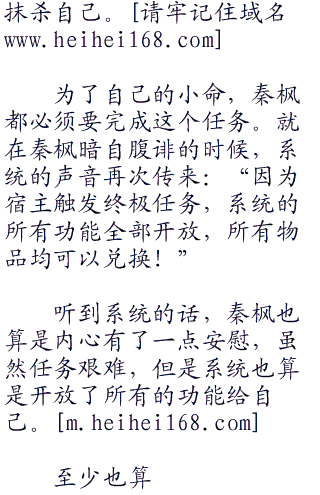 抹杀自己。[请牢记住域名
www.heihei168.com]
为了自己的小命，秦枫
都必须要完成这个任务。就
在秦枫暗自腹诽的时候，系
统的声音再次传来：“因为
宿主触发终极任务，系统的
所有功能全部开放，所有物
品均可以兑换！”
听到系统的话，秦枫也
算是内心有了一点安慰，虽
然任务艰难，但是系统也算
是开放了所有的功能给自
己。[m.heihei168.com]
至少也算